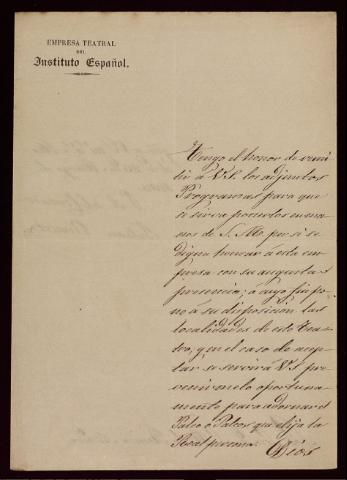 EMPRESA TEATRAL
DEL
Instituto Español.
Tengo el honor de remi
tir á V.S. los adjuntos
Programas para que
se sirva ponerlos en ma
nos de S. M. por si se
digna honrar á esta em
presa con su augusta
presencia; á cuyo fin pon
go á su disposicion las
localidades de este Tea
tro; y en el caso de acep
tar se servirá V.S. pre
venirmelo oportuna
mente para adornar el
Palco ó Palcos que elija la
Real persona.
Dios